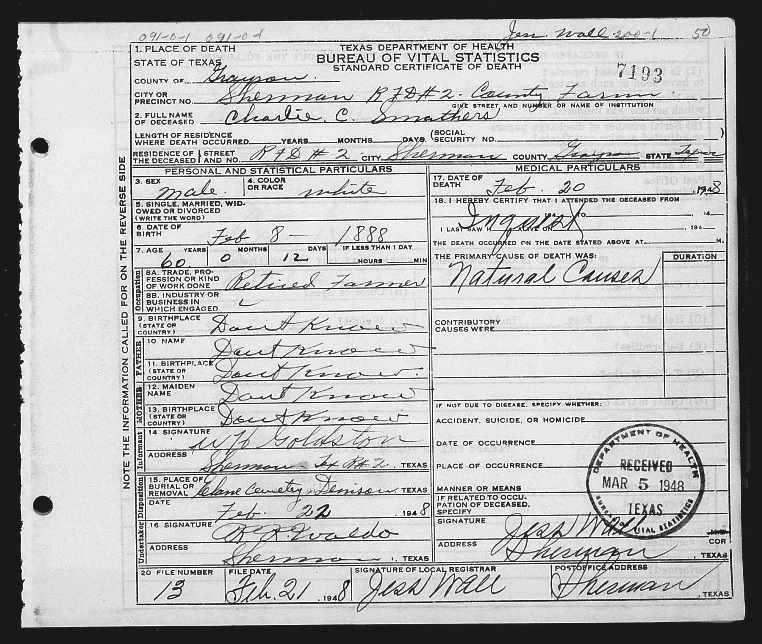 091-0-1 091-0-1 Jess Wall 200-1 50
1. PLACE OF DEATH
STATE OF TEXAS
TEXAS DEPARTMENT OF HEALTH
BUREAU OF VITAL STATISTICS
STANDARD CERTIFICATE OF DEATH
7193
COUNTY OF Grayson
CITY OR
PRECINCT NO. Sherman R F D # 2 - County Farm
GIVE STREET AND NUMBER OR NAME OF INSTITUTION
2. FULL NAME
OF DECEASED Charlie C. Smathers
LENGTH OF RESIDENCE
WHERE DEATH OCCURRED YEARS MONTHS DAYS (SOCIAL
SECURITY NO.
RESIDENCE OF STREET
THE DECEASED AND NO. R F D # 2 CITY Sherman COUNTY Grayson STATE Texas
PERSONAL AND STATISTICAL PARTICULARS
3. SEX male
4. COLOR
OR RACE white
5. SINGLE, MARRIED, WID-
OWED OR DIVORCED
(WRITE THE WORD)
6. DATE OF
BIRTH Feb 8 - 1888
7. AGE YEARS MONTHS DAYS IF LESS THAN 1 DAY
60 0 12 HOURS MIN
Occupation
8A. TRADE, PRO-
FESSION OR KIND
OF WORK DONE Retired Farmer
8B. INDUSTRY OR
BUSINESS IN
WHICH ENGAGED
9. BIRTHPLACE
(STATE OR
COUNTRY) Dont Know
FATHER
10 NAME Dont Know
11. BIRTHPLACE
(STATE OR
COUNTRY) Dont Know.
MOTHER
12. MAIDEN
NAME Dont Know
13. BIRTHPLACE
(STATE OR
COUNTRY) Dont Know
Informant
14 SIGNATURE W H Goldston
ADDRESS Sherman Tex R # 2, TEXAS
Disposition
15. PLACE OF
BURIAL OR
REMOVAL Cemetery Denison TEXAS
DATE Feb. 22 1948
Undertaker
16 SIGNATURE Waldo
ADDRESS Sherman, TEXAS
MEDICAL PARTICULARS
17. DATE OF
DEATH Feb. 20 1948
18. I HEREBY CERTIFY THAT I ATTENDED THE DECEASED FROM
Inquest
I LAST SAW H ALIVE ON 194
THE DEATH OCCURRED ON THE DATE STATED ABOVE AT M.
THE PRIMARY CAUSE OF DEATH WAS: DURATION
Natural Causes
CONTRIBUTORY
CAUSES WERE
IF NOT DUE TO DISEASE, SPECIFY WHETHER:
ACCIDENT, SUICIDE, OR HOMICIDE
DATE OF OCCURRENCE
PLACE OF OCCURRENCE
MANNER OR MEANS
IF RELATED TO OCCU-
PATION OF DECEASED,
SPECIFY
SIGNATURE Jess Wall
COR
ADDRESS Sherman, TEXAS
DEPARTMENT OF HEALTH
RECEIVED
MAR 5 1948
TEXAS
BUREAU OF VITAL STATISTICS
20 FILE NUMBER FILE DATE SIGNATURE OF LOCAL REGISTRAR POSTOFFICE ADDRESS
13 Feb. 21 1948 Jess Wall Sherman, TEXAS
NOTE THE INFORMATION CALLED FOR ON THE REVERSE SIDE